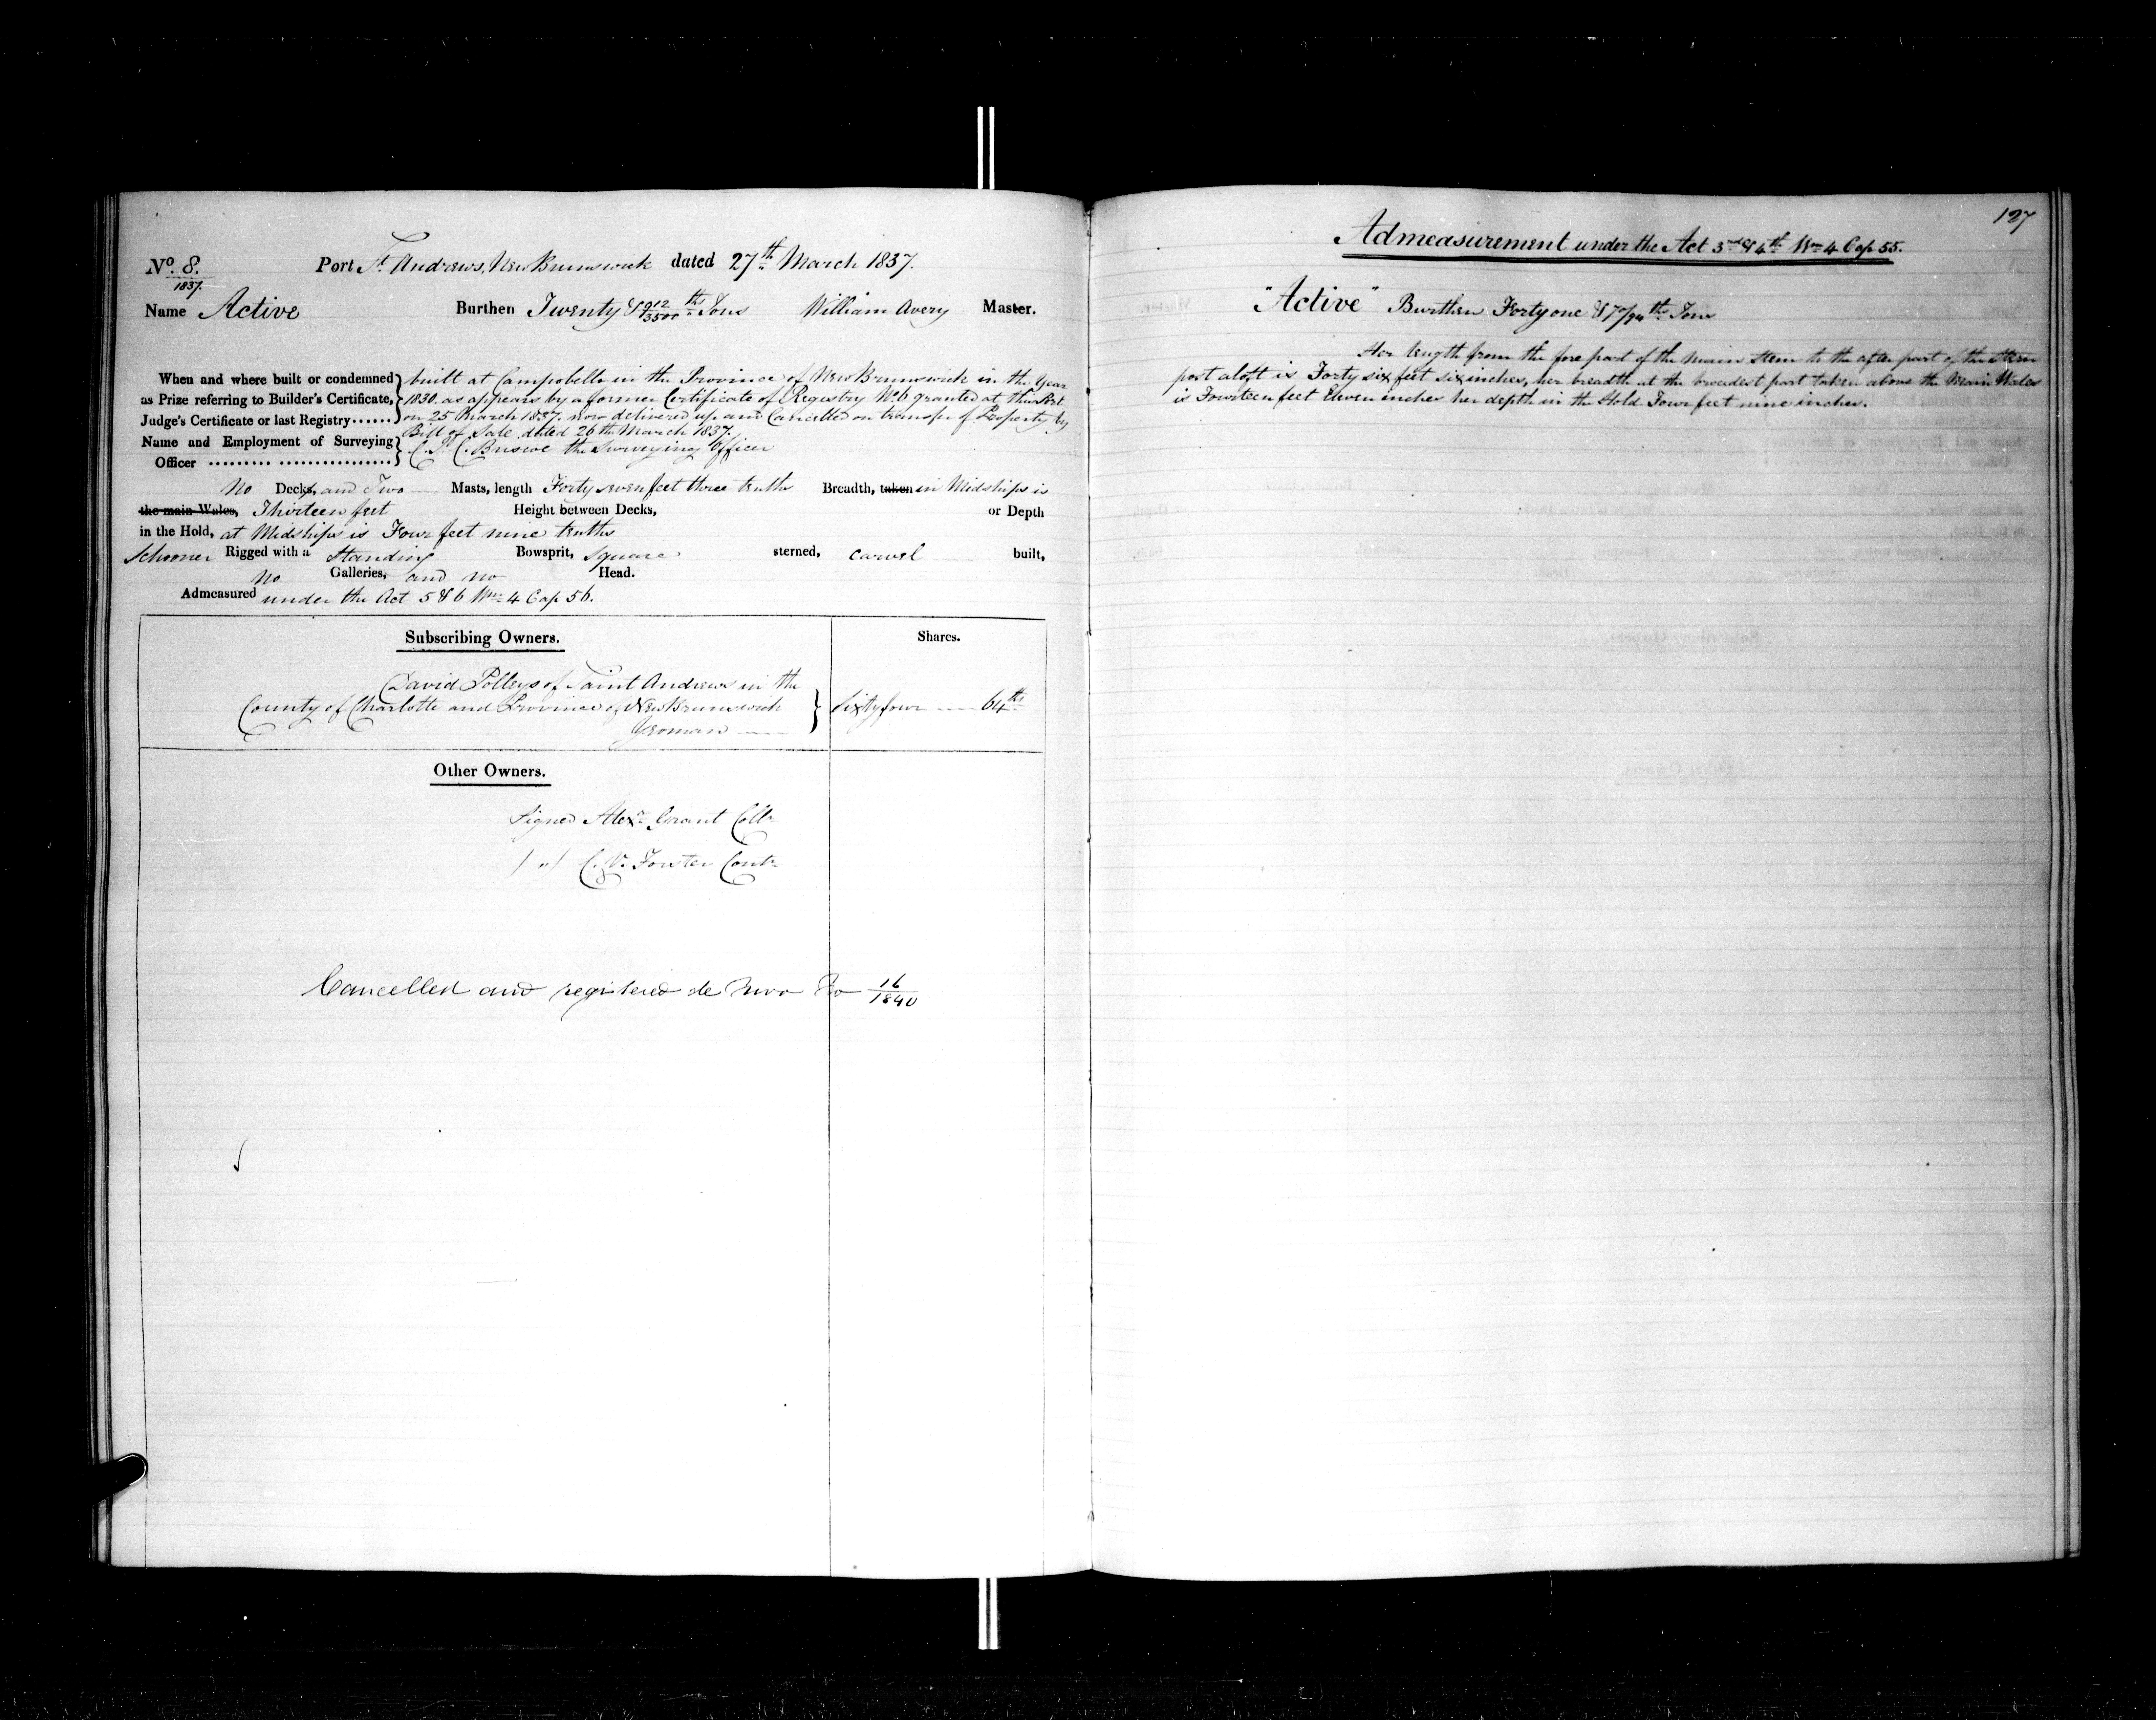 No. 8.
1837.
Port St. Andrews, New Brunswick dated 27th March 1837.
Name Active Burthen Twenty & 912/3500ths Tons William Avery Master.
When and where built or condemned as Prize referring to Builder's Certificate, Judge's Certificate or last Registry......
built at Campobello in the Province of New Brunswick in the Year
1830. as appears by a former Certificate of Registry No. 6 granted at this Port
on 25 March 1837. now delivered up and Cancelled on transfer of Property by
Bill of Sale dated 26th March 1837.
Name and Employment of Surveying Officer ......... .................
Briscoe the Surveying Officer
No Decks, and Two Masts, length Forty seven feet three tenths Breadth, taken in Midships is
the main Wales, Thirteen feet Height between Decks, or Depth
in the Hold, at Midships is Four feet nine tenths
Schooner Rigged with a Standing Bowsprit, square sterned, carvel built,
No Galleries, and no Head.
Admeasured under the Act 5 & 6 Wm. 4 Cap 56.
Subscribing Owners. Shares.
David Polleys of Saint Andrews in the
County of Charlotte and Province of New Brunswick
Yeoman
Sixty four 64ths
Other Owners.
Signed Alexr. Grant Collr
/ " / C. Forster Contr
Cancelled and registered de Novo No 16/1840
127
Admeasurement under the Act 3rd & 4th Wm 4 Cap 55.
"Active" Burthen Forty one & 77/94ths Tons
Her length from the fore part of the main stem to the after part of the Stern
post aloft is Forty six feet six inches, her breadth at the broadest part taken above the Main Wales
is Fourteen feet Eleven inches her depth in the Hold Four feet nine inches.